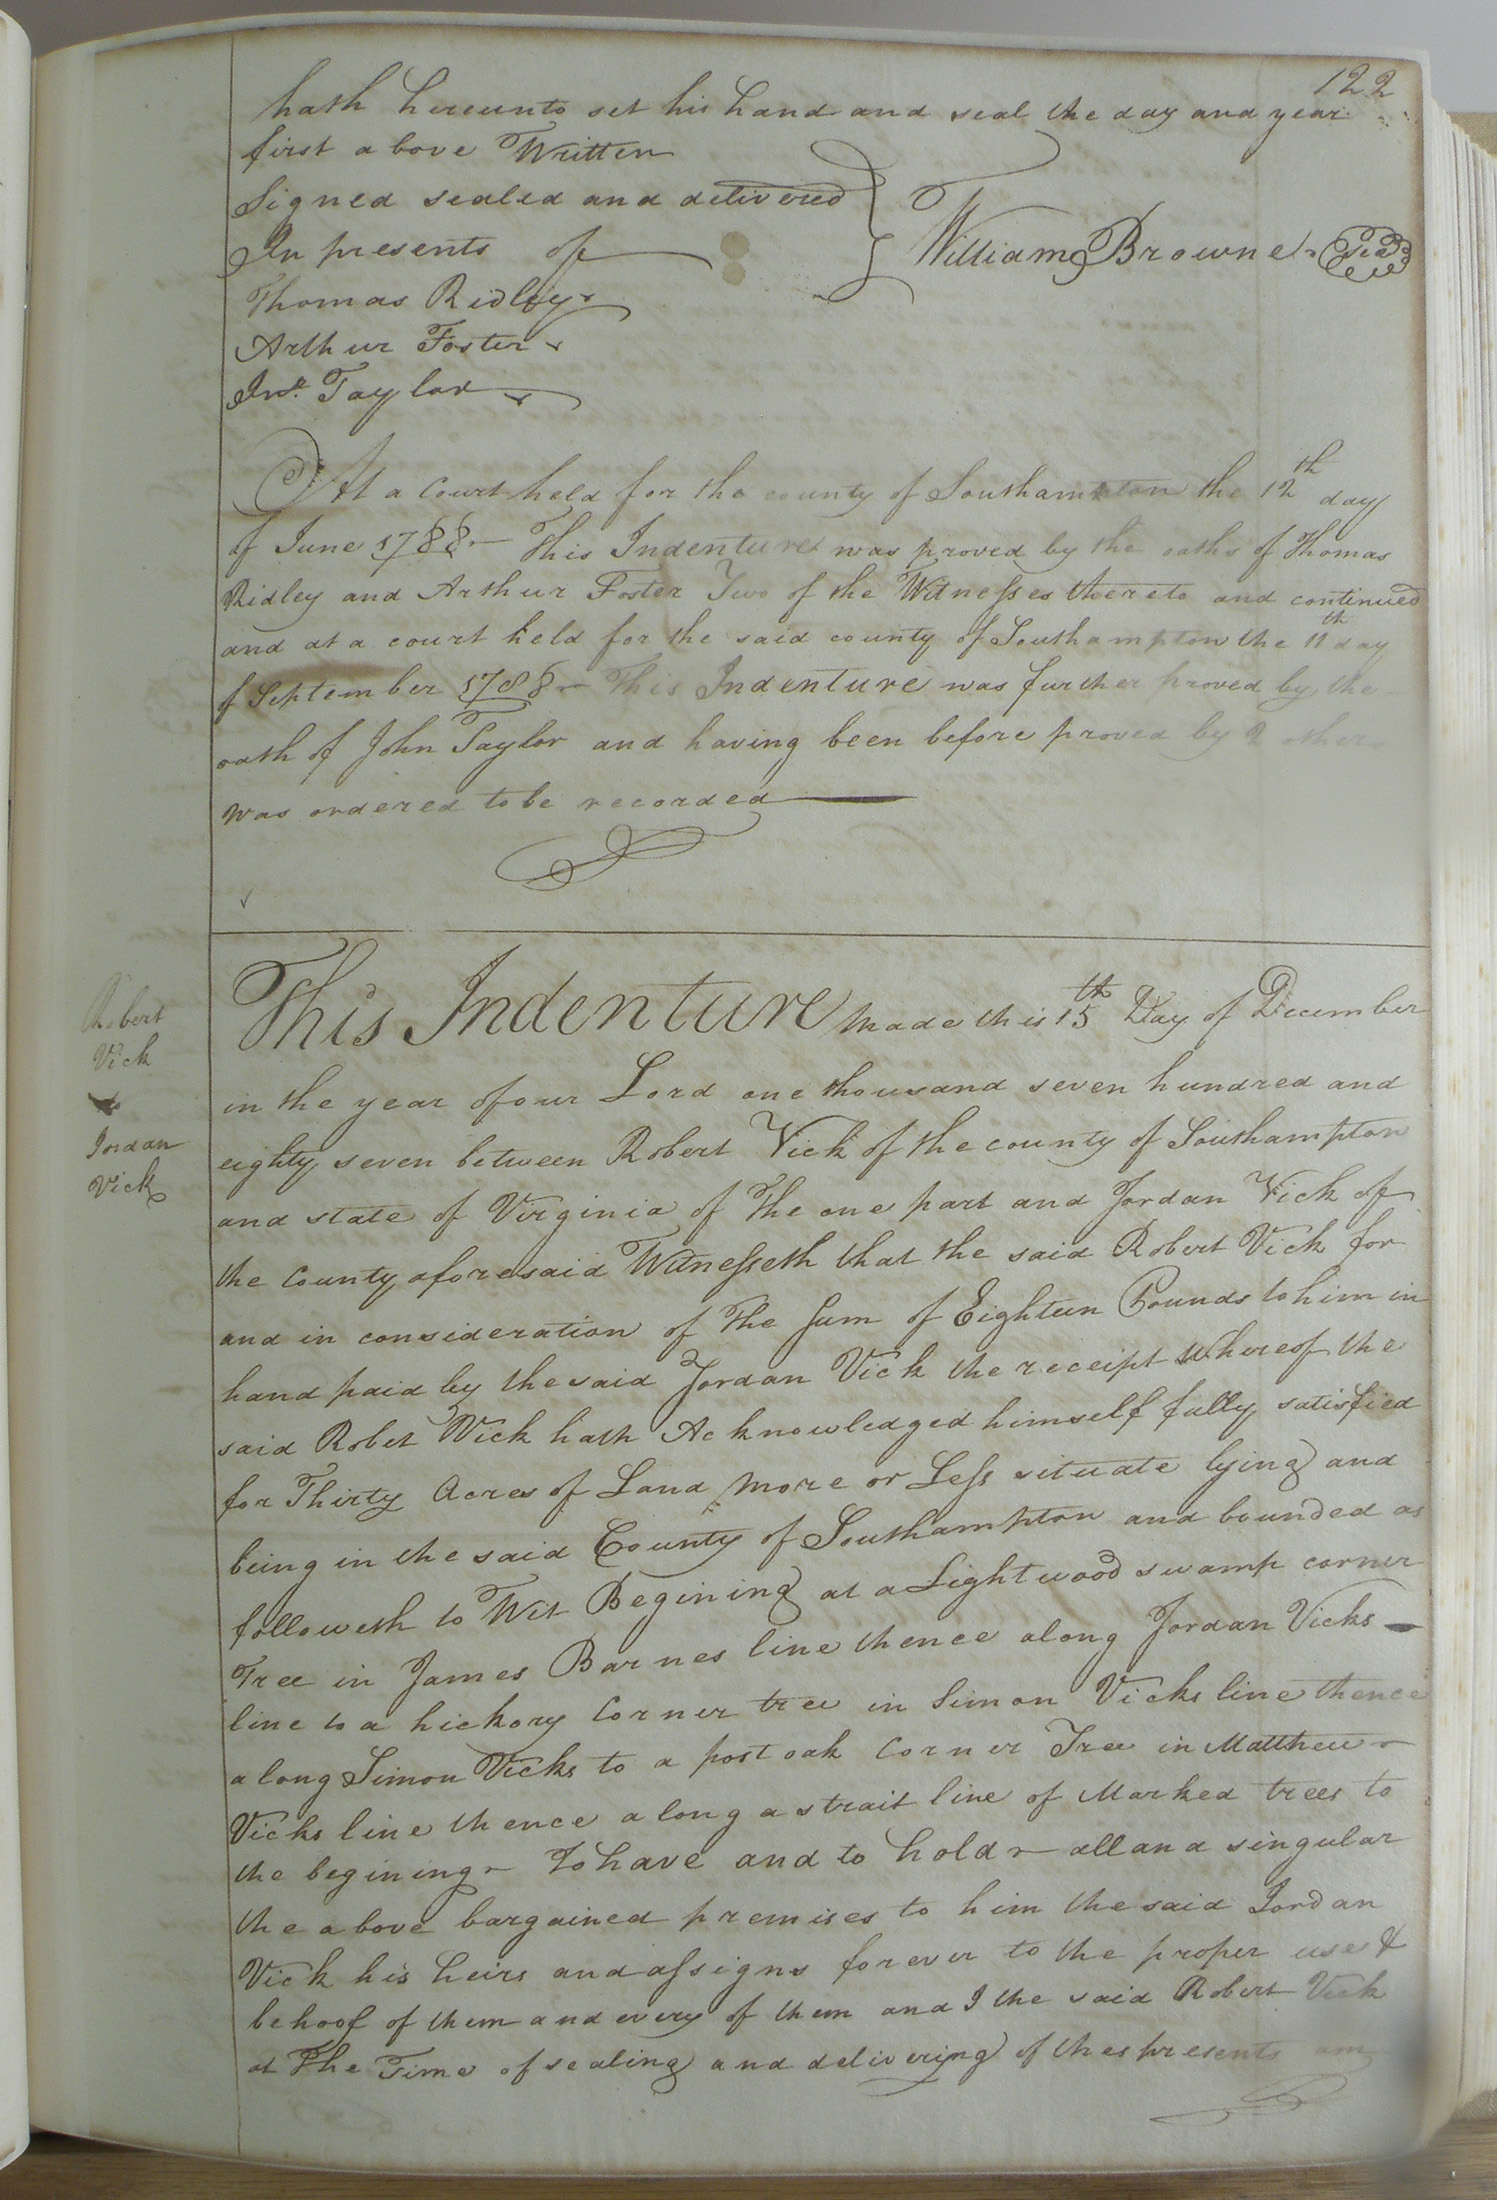 122
hath hereunto set his hand and seal the day and year
first above Written
Signed sealed and delivered
In presents of
William Browne Seal
Thomas Ridley
Arthur Foster
Jno. Taylor
At a Court held for the county of Southampton the 12th day
of June 1788 - This Indenture was proved by the oaths of Thomas
Ridley and Arthur Foster Two of the Witnesses thereto and continued
and at a court held for the said county of Southampton the 11th day
of September 1788 - This Indenture was further proved by the
oath of John Taylor and having been before proved by 2 other
was ordered to be recorded
Robert
Vick
to
Jordan
Vick
This Indenture Made this 15th Day of December
in the year of our Lord one thousand seven hundred and
eighty seven between Robert Vick of the county of Southampton
and state of Virginia of The one part and Jordan Vick of
the County aforesaid Witnesseth that the said Robert Vick for
and in consideration of The Sum of Eighteen Pounds to him in
hand paid by the said Jordan Vick the receipt whereof the
said Robet Vick hath Acknowledged himself fully satisfied
for Thirty Acres of Land More or Less situate lying and
being in the said County of Southampton and bounded as
followeth to Wit Begining at a Lightwood swamp corner
Tree in James Barnes line thence along Jordan Vicks
line to a hickory Corner tree in Simon Vicks line thence
along Simon Vicks to a post oak Corner Tree in Matthew
Vicks line thence along a strait line of Marked trees to
the begining - To have and to hold - all and singular
the above bargained premises to him the said Jordan
Vick his heirs and assigns forever to the proper use &
behoof of them and every of them and I the said Robert Vick
at The Time of sealing and delivering of thes presents am